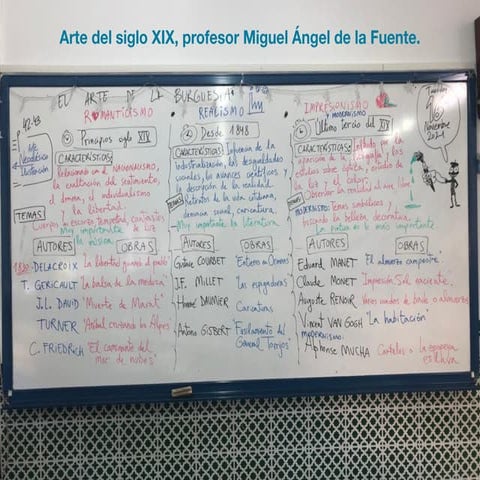 Arte del siglo XIX, profesor Miguel Ángel de la Fuente.
EL ARTE DE LA BURGUESÍA
ROMANTICISMO
① Principios siglo XIX
CARACTERÍSTICAS:
Relacionado con el NACIONALISMO,
la exaltación del sentimiento,
el drama, el individualismo
y la libertad.
TEMAS
Muy importante
la música
AUTORES OBRAS
DELACROIX "La libertad guiando al pueblo"
T. GERICAULT "La balsa de la medusa"
J.L. DAVID "Muerte de Marat"
TURNER "Aníbal cruzando los Alpes"
C. FRIEDRICH "El caminante del
mar de nubes"
REALISMO
② Desde 1848
CARACTERÍSTICAS: Influencia de la
industrialización, las desigualdades
sociales, los avances científicos y
la descripción de la realidad.
TEMAS Retratos de la vida cotidiana,
denuncia social, caricaturas.
Muy importante la literatura
AUTORES OBRAS
Gustave COURBET "Entierro en Ornans"
J.F. MILLET "Las espigadoras"
Honoré DAUMIER Caricaturas
Antonio GISBERT "Fusilamiento del
General Torrijos"
IMPRESIONISMO
y MODERNISMO
Último tercio del XIX
CARACTERÍSTICAS: Influido por la
aparición de la fotografía, y los
estudios sobre óptica, estudio de
la luz y el color.
TEMAS Observar la realidad al aire libre
MODERNISMO: Temas simbólicos y
buscando la belleza decorativa.
La pintura es lo más importante
AUTORES OBRAS
Eduard MANET "El almuerzo campestre"
Claude MONET "Impresión Sol naciente"
Auguste RENOIR
Vincent VAN GOGH "La habitación"
MODERNISMO:
Alphonse MUCHA Carteles
16
Noviembre
2021